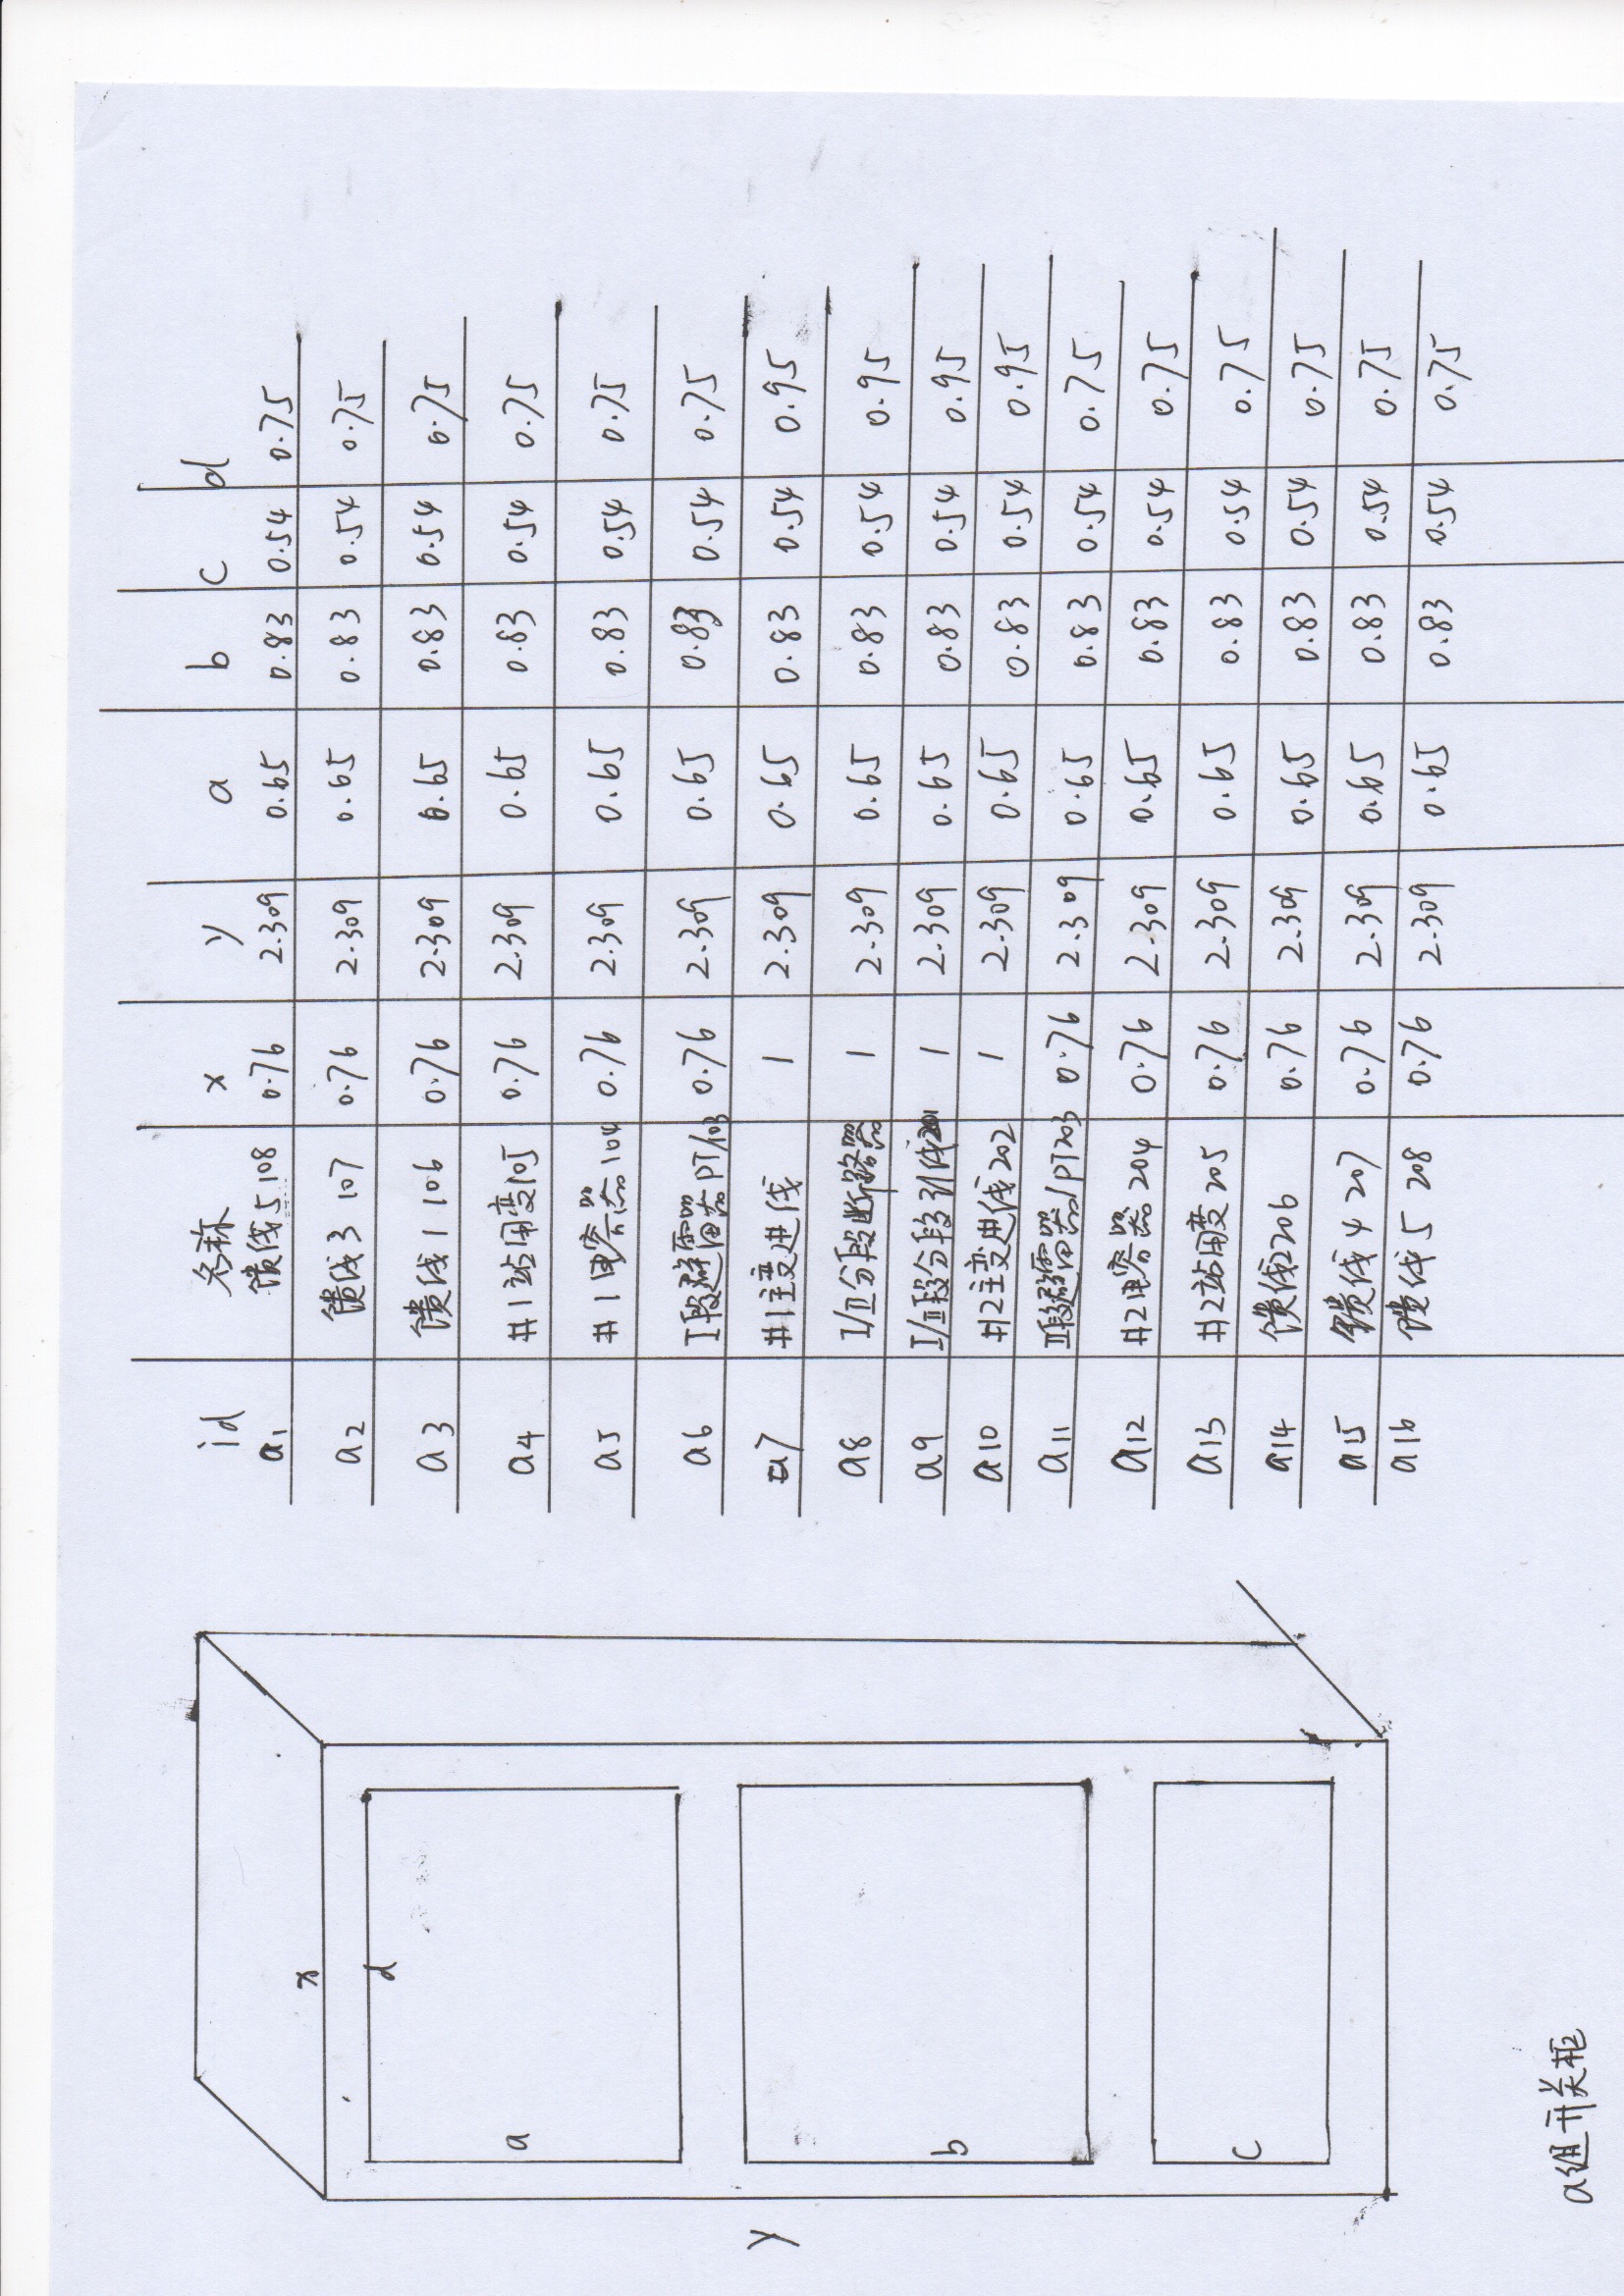 id 名称 x y a b c d
a1 馈线5 108 0.76 2.309 0.65 0.83 0.54 0.75
a2 馈线3 107 0.76 2.309 0.65 0.83 0.54 0.75
a3 馈线1 106 0.76 2.309 0.65 0.83 0.54 0.75
a4 #1站用变105 0.76 2.309 0.65 0.83 0.54 0.75
a5 #1电容器104 0.76 2.309 0.65 0.83 0.54 0.75
a6 I段避雷器PT/103 0.76 2.309 0.65 0.83 0.54 0.75
a7 #1主变进线 1 2.309 0.65 0.83 0.54 0.95
a8 I/II分段断路器 1 2.309 0.65 0.83 0.54 0.95
a9 I/II段分段引线201 1 2.309 0.65 0.83 0.54 0.95
a10 #2主变进线202 1 2.309 0.65 0.83 0.54 0.95
a11 II段避雷器/PT203 0.76 2.309 0.65 0.83 0.54 0.75
a12 #2电容器204 0.76 2.309 0.65 0.83 0.54 0.75
a13 #2站用变205 0.76 2.309 0.65 0.83 0.54 0.75
a14 馈线2206 0.76 2.309 0.65 0.83 0.54 0.75
a15 馈线4 207 0.76 2.309 0.65 0.83 0.54 0.75
a16 馈线5 208 0.76 2.309 0.65 0.83 0.54 0.75
x
d
a
y
b
c
a组开关柜